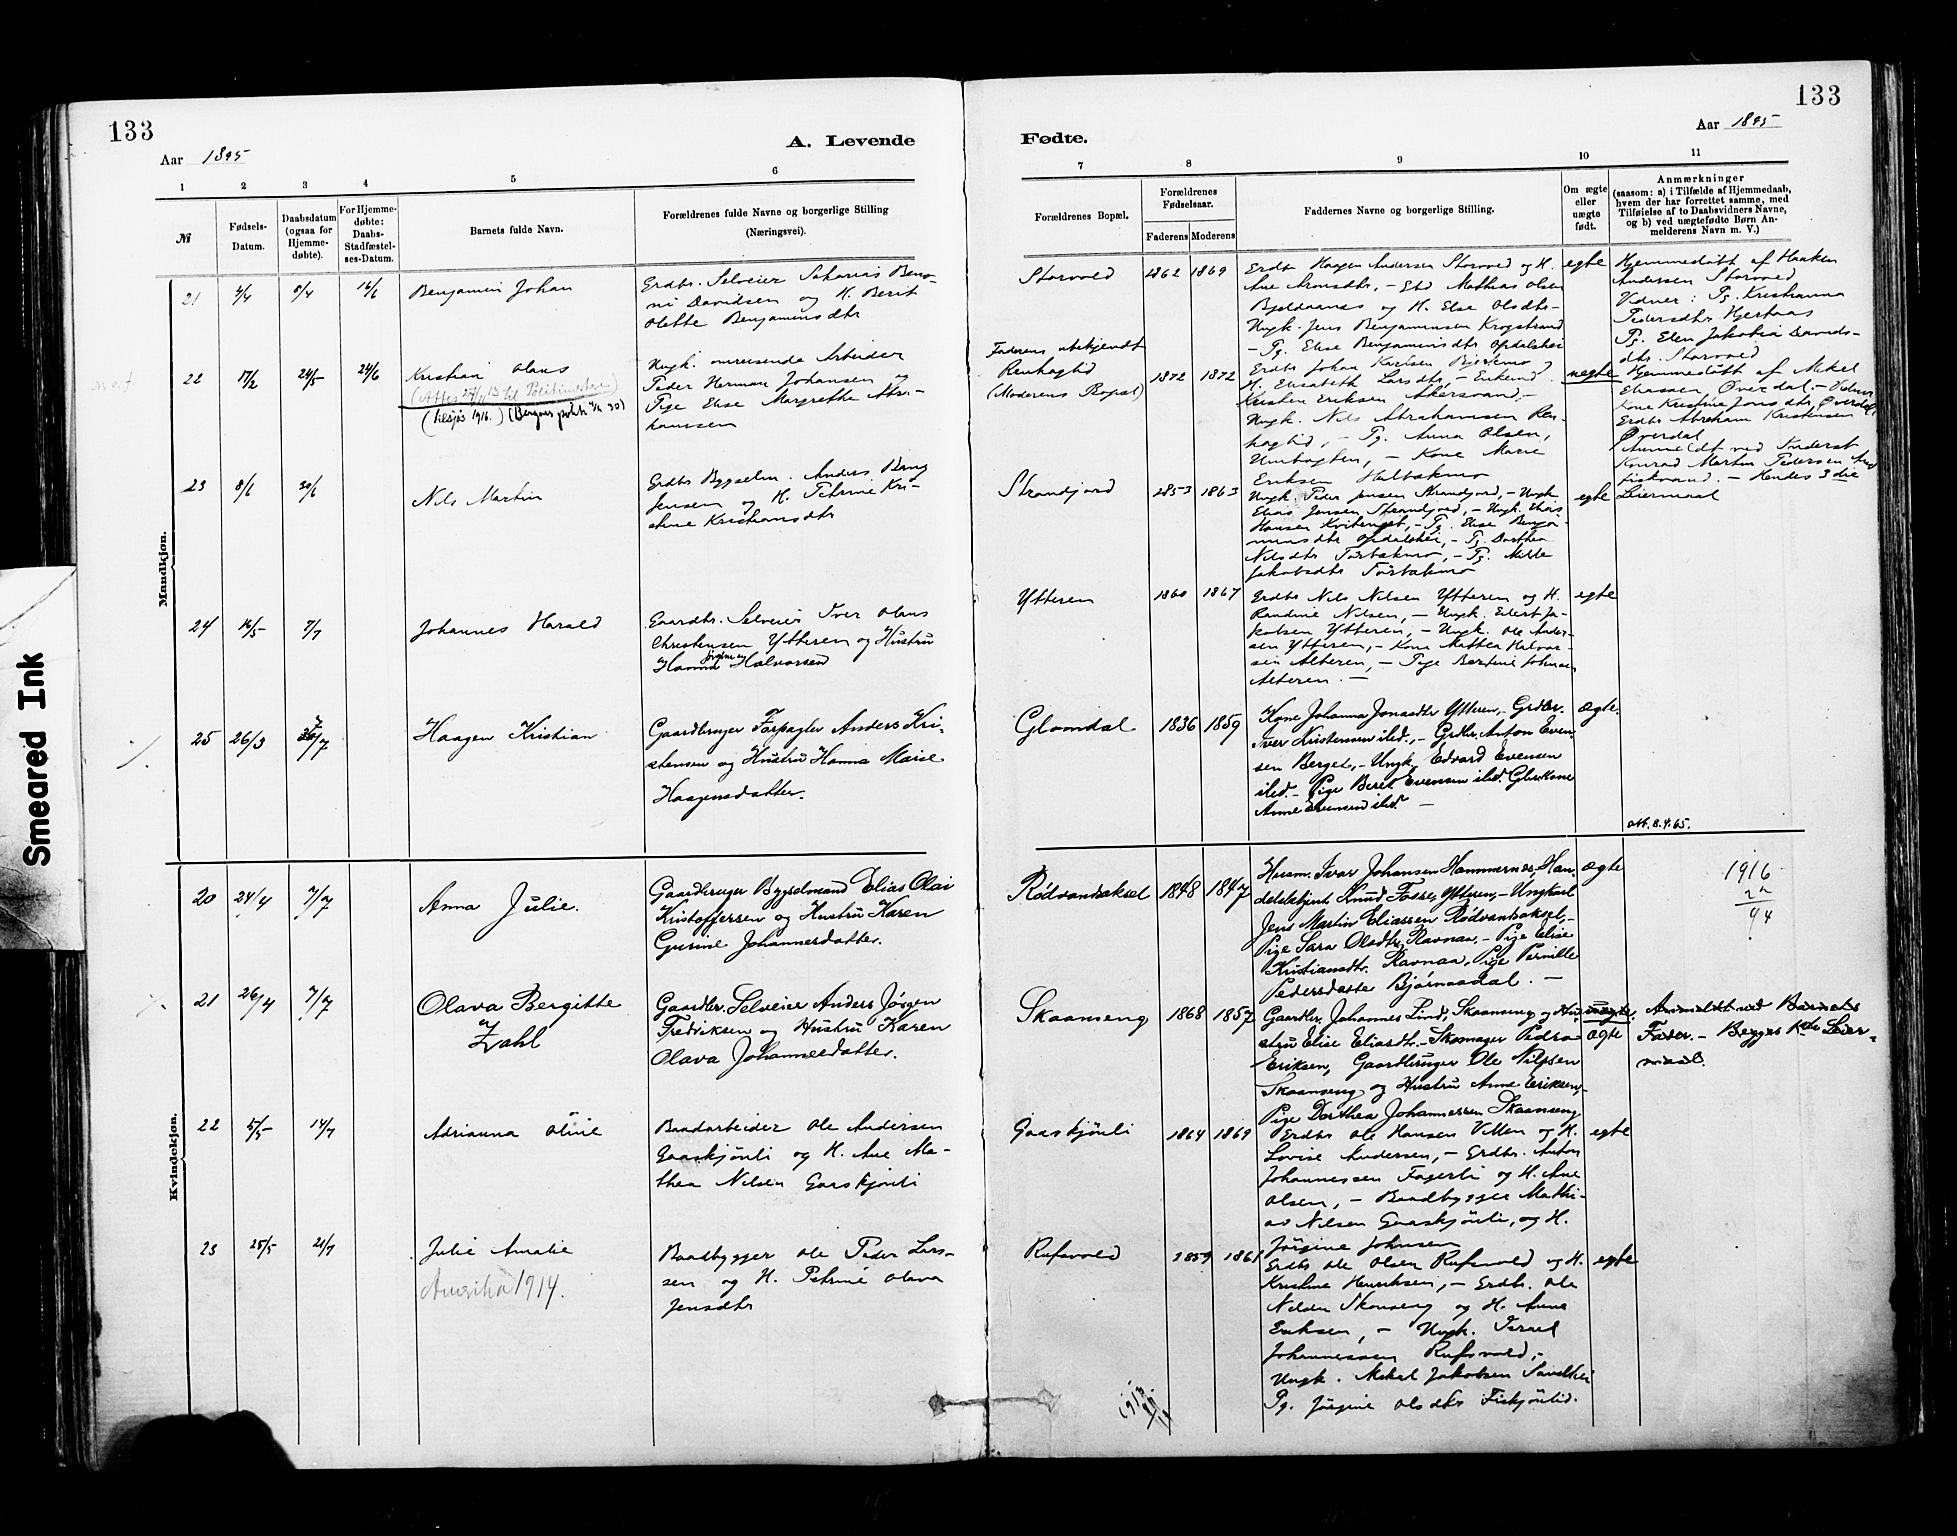 133
133
Aar 1895
A. Levende
Fødte.
Aar 1895
1
2
3
4
5
6
7
8
9
10
11
№
Fødsels-
Datum.
Daabsdatum
(ogsaa for
Hjemme-
døbte).
For Hjemme-
døbte:
Daabs-
Stadfæstel-
ses-Datum.
Barnets fulde Navn.
Forældrenes fulde Navne og borgerlige Stilling
(Næringsvei).
Forældrenes Bopæl.
Forældrenes
Fødselsaar.
Faderens
Moderens
Faddernes Navne og borgerlige Stilling.
Om ægte
eller
uægte
født.
Anmærkninger
(saasom: a) i Tilfælde af Hjemmedaab,
hvem der har forrettet samme, med
Tilføielse af to Daabsvidners Navne,
og b) ved uægtefødte Børn An-
melderens Navn m. V.)
Mandkjøn.
21
16/6
Benjamin Johan
Grdbr. Selveier Sakarias Beno-
ni Davidsen og H. Berit
Olette Benjaminsdtr
Storvold
1862 1869
Grdbr Haagen Andersen Storvold og H.
Ane Aronsdtr, - Grd Mathias Olsen
Bjeldaanes og H. Else Olsdtr-
Ungk. Jens Benjaminsen Krogstrand
- Pg. Elise Benjaminsdtr Opdalshei
egte
Hjemmedøbt af Haaken
Andersen Storvold
Vidner: Pg. Kristianna
Pedersdtr Hjertaas
Pg. Elen Jakobia Davids-
dtr. Storvold
22
17/2
24/5
24/6
Kristian Olaus
(tilsjøs 1916.)
Ungk. omreisende Arbeider
Peder Herman Johansen og
Pige Else Margrethe Abra-
hamsen
Faderens ubekjendt
Renhagtid
(Moderens Bopæl)
1872 1872
Grdbr Johan Karlsen
H. Elisabeth Larsdtr, - Enkemd.
Kristen Eriksen Akersvan, -
Ungk. Nils Abrahamsen Ren-
hagtid, - Pg. Anna Olsen,
Umbogten, - Kone Marie
Eriksen
uegte
Hjemmedøbt af Mikel
Eliassen Øverdal, - Vidner
Kone Kristine Jonsdtr, Øverdal,
Grdbr Abraham Kristensen
Øverdal
Anmeldt ved Inderst
Konrad Martin Pedersen
- Hendes 3die
Leiermaal
23
8/6
30/6
Nils Martin
Grdbr Bygselm. Anders Bang
Jensen og H. Petrine Kri-
stine Kristiansdtr
Strandjord
1853 1863
Ungk. Peder Jensen Strandjord, - Ungk
Elias Jensen Strandjord, - Ungk.
Hansen Kvitenget, - Pg. Elise Benja-
minsdtr Opdalshei, - Pg. Dorthea
Nilsdtr Tørbækmo, - Pg. Mille
Jakobsdtr Tørbækmo
egte
24
16/5
7/7
Johannes Harald
Gaardbr. Selveier Iver Olaus
Christensen Ytteren og Hustru
Hanna Halvorsen
Ytteren
1860 1867
Grdbr Nils Nilsen Ytteren og H.
Randine Nilsen, - Ungk. Edvert Ja-
kobsen Ytteren, - Ungk. Ole Ander-
sen Ytteren, - Kone Mattea Halvor-
sen Alteren, - Pige Bertine Johnsen
Alteren. -
egte
25
26/3
7/7
Haagen Kristian
Gaardbruger Forpagter Anders Kri-
stensen og Hustru Hanna Marie
Haagensdatter.
Glomdal
1836 1859
Kone Johanna Jonasdtr Ytteren, - Grdbr.
Iver Kristensen ibid., - Grdbr. Anton Even-
sen Berget, - Ungk. Edvard Evensen
ibid. - Pige Berit Evensen ibid.
Anne Evensen ibid. -
ægte.
att. 8.4.65.
Kvindekjøn.
20
24/4
7/7
Anna Julie.
Gaardbruger Bygselmand Elias Olai
Kristoffersen og Hustru Karen
Gurine Johannesdatter.
Rødvandsaksel
1848 1847
Husm. Ivar Johansen Hammernes, Han-
delsbetjent Knud Fosse, Ytteren, - Ungkarl
Jens Martin Eliassen Rødvandsaksel, -
Pige Sara Olsdtr. Ravnaa, - Pige Elise
Kristiansdtr. Ravnaa, Pige Pernille
Pedersdatter Bjørnaadal. -
ægte
1916
21
26/4
7/7
Olava Bergitte
Zahl
Gaardbr. Selveier Anders Jørgen
Fredriksen og Hustru Karen
Olava Johannesdatter.
Skaanseng
1868 1857
Gaardbr. Johannes Lind, Skaanseng og Hu-
stru Elise Eliasdt. - Skomager Pedra
Eriksen, Gaardbruger Ole Nilsen
Skaanseng og Hustru Anne Eriksen, -
Pige Dorthea Johannessen Skaanseng
uægte
ægte
Anmeldt ved Barnets
Fader. - Begges 1ste Leier-
maal.
22
5/5
14/7
Adrianna Oline
Baadarbeider Ole Andersen
Gaaskjønli og H. Ane Ma-
thea Nilsen Gaaskjønli
Gaaskjønli
1864 1869
Grdbr Ole Hansen Villen og H.
Lovise Andersen, - Grdbr. Anton
Johannessen Fagerli og H. Ane
Olsen, - Baadbygger Mathi-
as Nilsen Gaaskjønli, og H.
Jørgine Johnsen
egte
23
25/5
21/7
Julie Amalie
Amerika 1914.
Baadbygger Ole Peder Lars-
sen og H. Petrine Olava
Jensdtr
Rufsvold
1859 1861
Grdbr Ole Olsen Rufsvold og H.
Kristine Henriksen, - Grdbr. Ole
Nilsen Skonseng og H. Anne
Eriksen, - Ungk. Israel
Johannessen Rufsvold, -
Ungk. Mikal Jakobsen
Pg. Jørgine Olsdtr Fiskjønlid.
egte
Smeared Ink